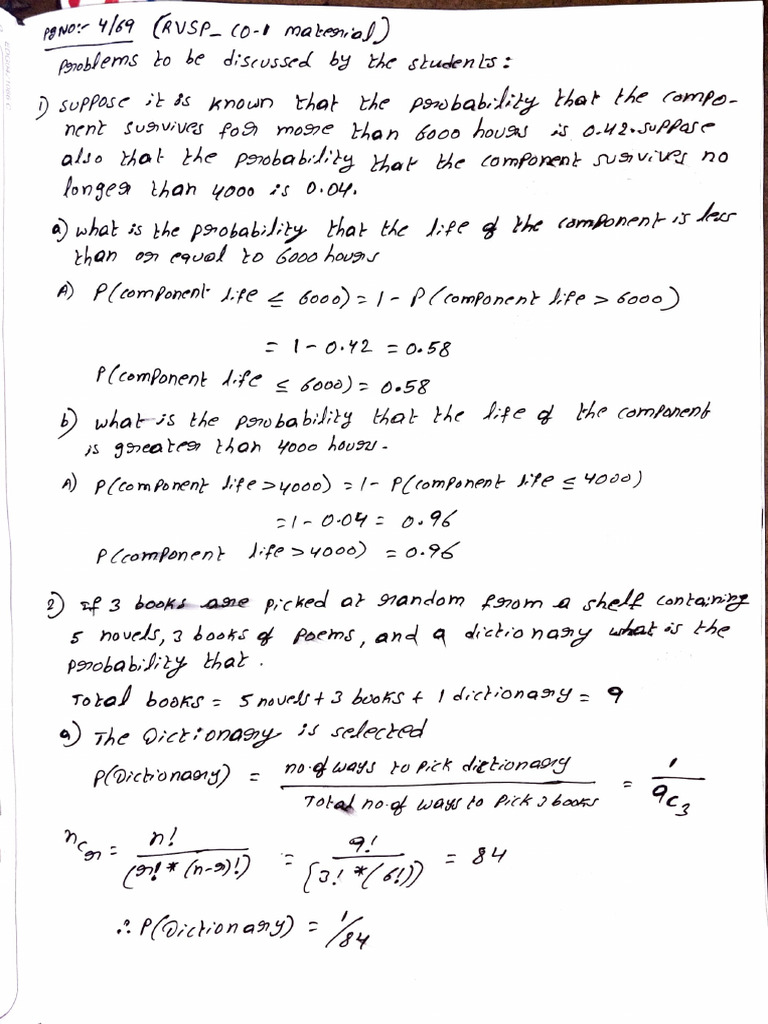 PGNO:- 4/69 (RVSP_ CO-1 material)
Problems to be discussed by the students:
1) suppose it is known that the probability that the compo-
nent survives for more than 6000 hours is 0.42. suppose
also that the probability that the component survives no
longer than 4000 is 0.04.
a) what is the probability that the life of the component is less
than or equal to 6000 hours
A) P(component life ≤ 6000) = 1 - P(component life > 6000)
= 1 - 0.42 = 0.58
P(component life ≤ 6000) = 0.58
b) what is the probability that the life of the component
is greater than 4000 hours.
A) P(component life > 4000) = 1 - P(component life ≤ 4000)
= 1 - 0.04 = 0.96
P(component life > 4000) = 0.96
2) If 3 books are picked at random from a shelf containing
5 novels, 3 books of poems, and a dictionary what is the
probability that.
Total books = 5 novels + 3 books + 1 dictionary = 9
a) The Dictionary is selected
P(Dictionary) = no. of ways to pick dictionary / Total no. of ways to pick 3 books = 1 / 9C3
nCr = n! / (r! * (n-r)!) = 9! / [3! * (6!)] = 84
∴ P(Dictionary) = 1/84